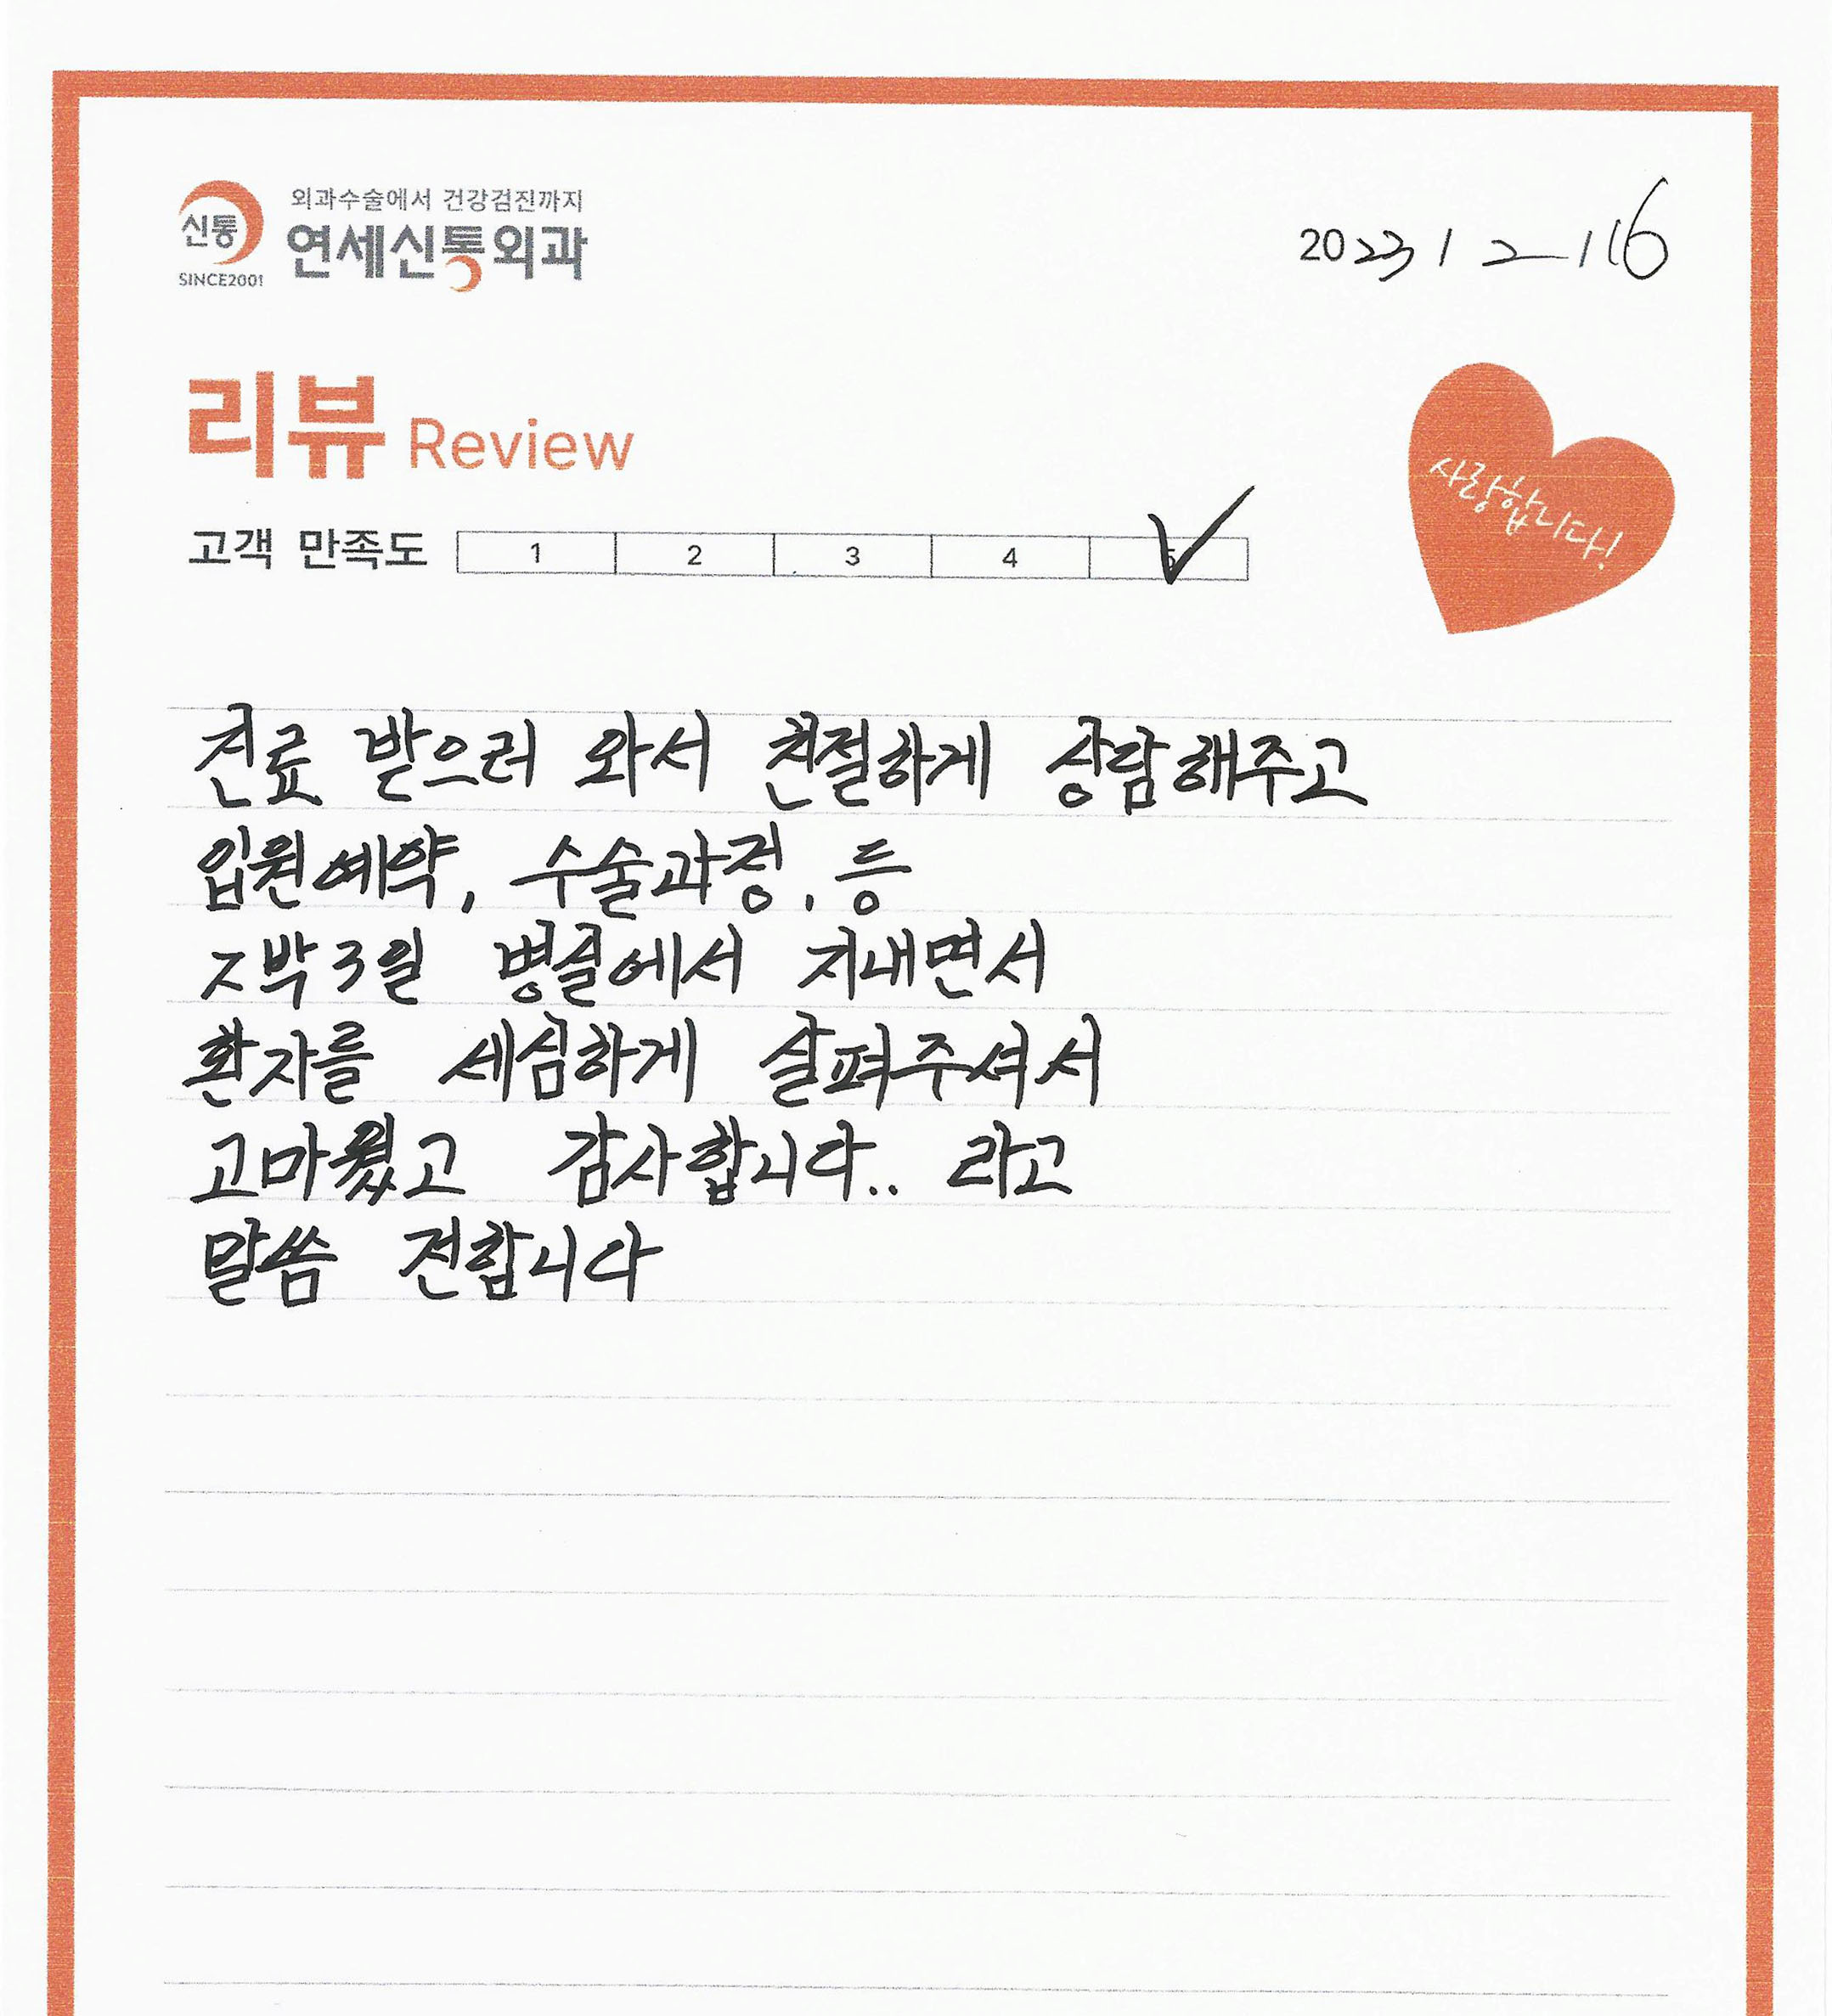 외과수술에서 건강검진까지
신통
연세신통외과
SINCE2001
2023 / 2 / 16
리뷰 Review
사랑합니다!
고객 만족도 1 2 3 4 5
진료 받으러 와서 친절하게 상담해주고
입원예약, 수술과정, 등
2박3일 병실에서 지내면서
환자를 세심하게 살펴주셔서
고마웠고 감사합니다.. 라고
말씀 전합니다